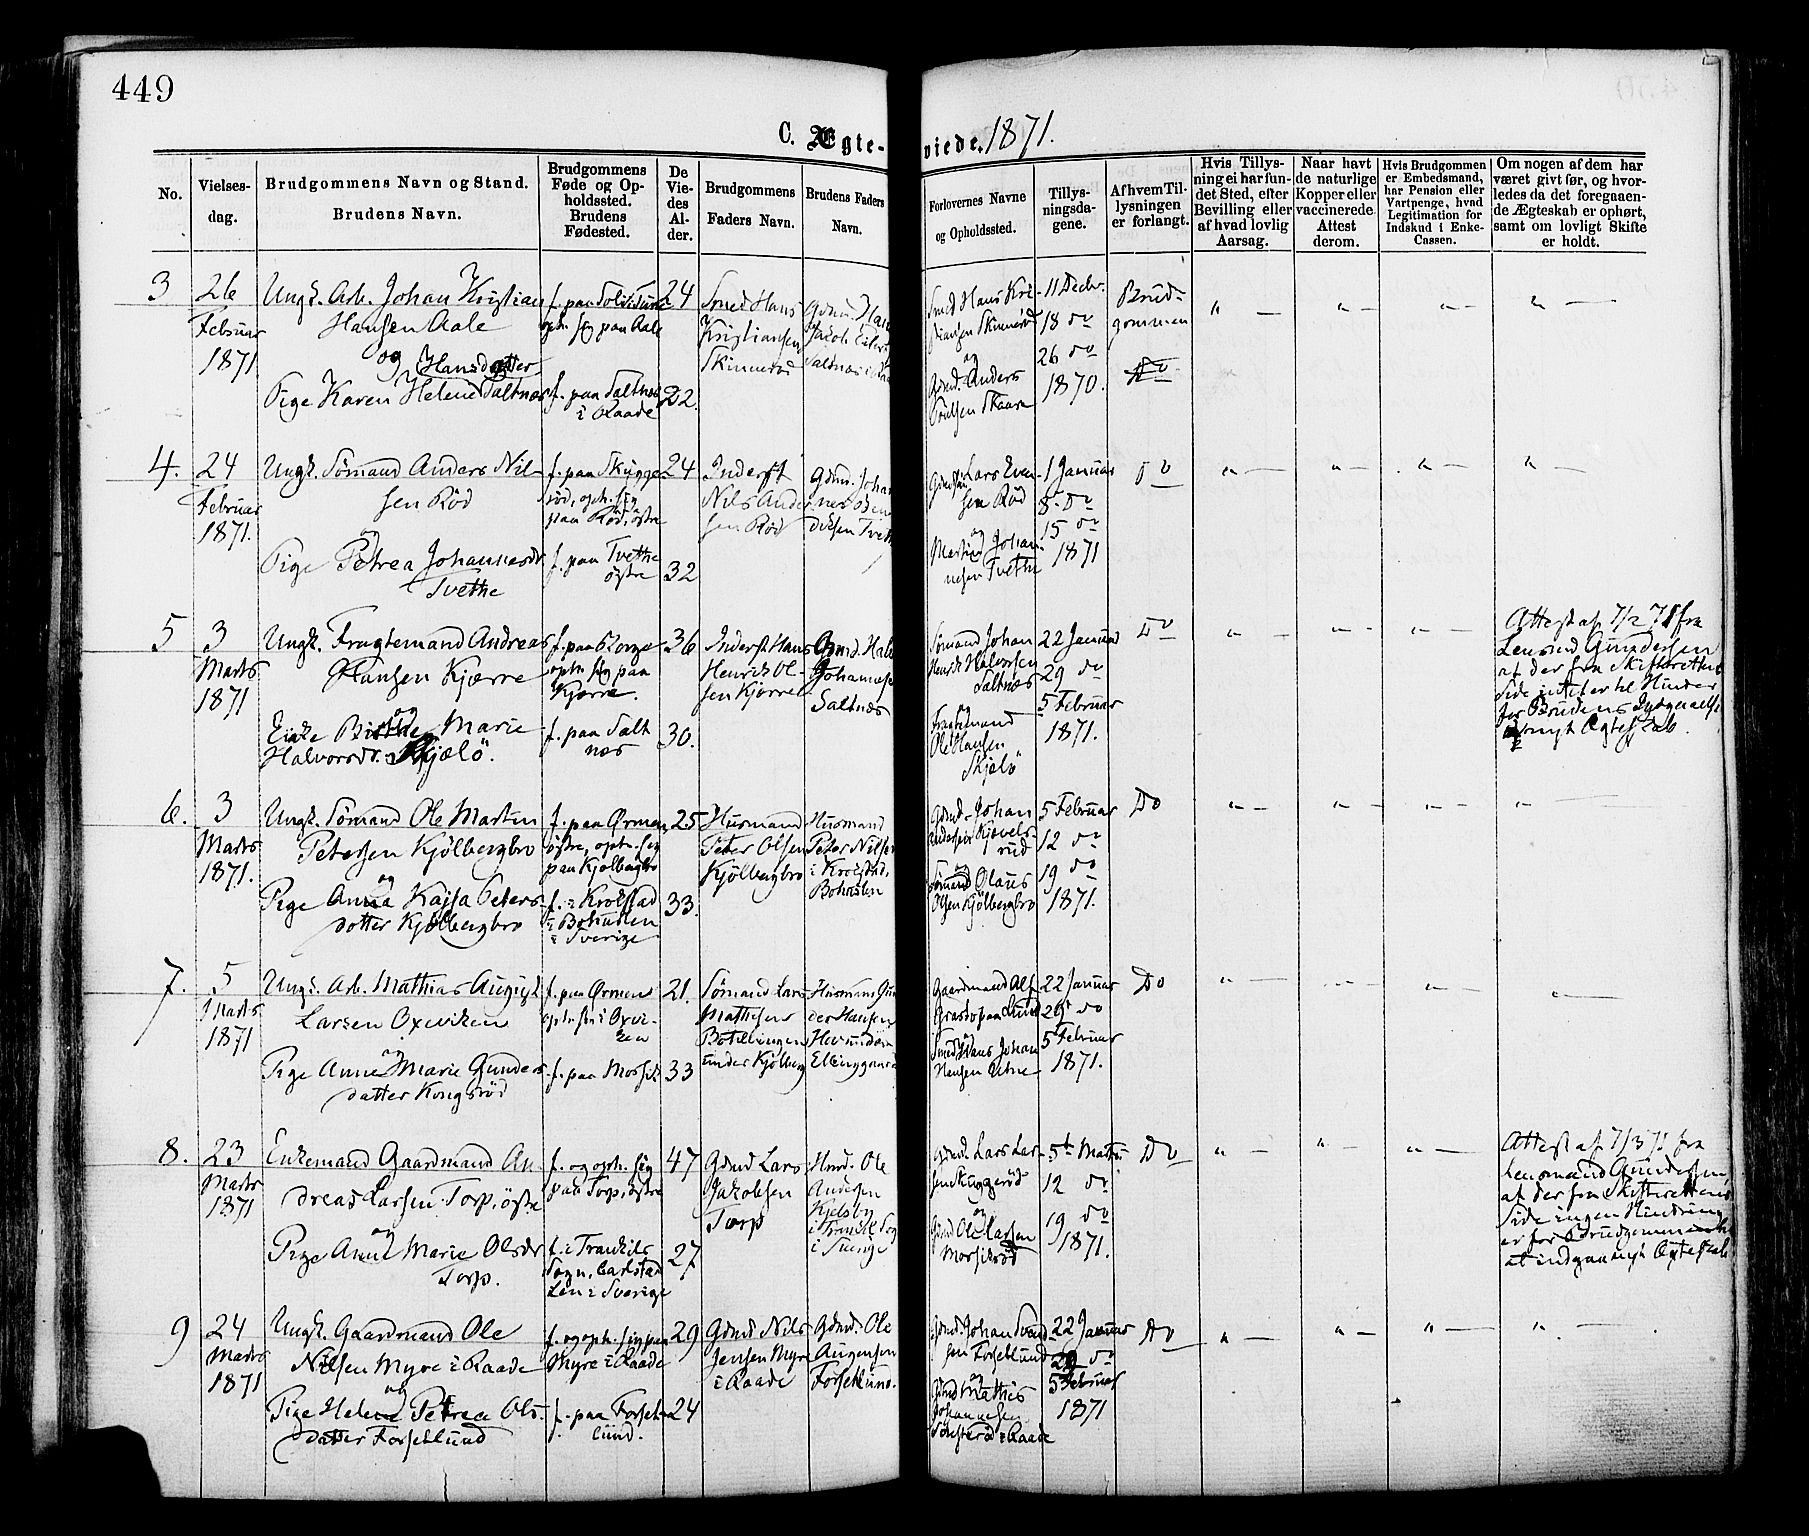 449
C. Ægte-
viede. 1871.
No.
Vielses-
dag.
Brudgommens Navn og Stand.
Brudens Navn.
Brudgommens
Føde og Op-
holdssted.
Brudens
Fødested.
De
Vie-
des
Al-
der.
Brudgommens
Faders Navn.
Brudens Faders
Navn.
Forlovernes Navne
og Opholdssted.
Tillys-
ningsda-
gene.
Af hvem Til-
lysningen
er forlangt.
Hvis Tillys-
ning ei har fun-
det Sted, efter
Bevilling eller
af hvad lovlig
Aarsag.
Naar havt
de naturlige
Kopper eller
vaccinerede.
Attest
derom.
Hvis Brudgommen
er Embedsmand,
har Pension eller
Vartpenge, hvad
Legitimation for
Indskud i Enke-
Cassen.
Om nogen af dem har
været givt før, og hvor-
ledes da det foregaaen-
de Ægteskab er ophørt,
samt om lovligt Skifte
er holdt.
3
26
Februar
1871
Ungk. Arb. Johan Kristian
Hansen Aale
og Hansdatter
Pige Karen Helene Saltnæs
oph. sig paa Aale
f. paa Saltnæs
i Raade
24
22.
Smed Hans
Kristiansen
Skinnerød
Gdmd. Hans
Jacob
Saltnæs i
Smed Hans Kri-
stiansen Skinnerød
og
Gdmd. Anders
Poulsen Skaare
11 Decbr.
18 do
26 do
1870.
Brud-
gommen
Do
4.
24
Februar
1871.
Ungk. Sömand Anders Nil-
sen Röd
og
Pige Petrea Johannesdr.
Tvethe
f. paa Skygge-
röd, oph. sig
paa Röd, östre
f. paa Tvethe
östre
24
32
Inderst
Nils Ander-
sen Röd
Gdmd. Johan-
nes
Tvethe
Lars Even-
sen Röd
og
Martin Johan-
nesen Tvethe
1 Januar
8. do
15 do
1871
Do
5
3
Marts
1871
Ungk. Fragtemand Andreas
Hansen Kjærre
og
Enke Birthe Marie
Halvorsdr. Skjælö.
oph. sig paa
Kjærre.
f. paa Salt
næs
36
30.
Inderst Hans
Henrik Ol-
sen Kjærre
Gdmd. Halv
Johannes
Saltnæs
Sömand Johan
Henrik Halvorsen
Saltnæs
og
Fragtemand
Ole Hansen
Skjælö
22 Januar
29 do
5 Februar
1871.
Do
Attest af 7/2 71 fra
Lensmd Gundersen
at der fra Skifterettens
Side intet er til Hinder
for Brudens Indgaaelse
nyt Ægteskab.
6.
3
Marts
1871.
Ungk. Sömand Ole Martin
Petersen Kjölbergbro
og
Pige Anna Kajsa Peters-
datter Kjölbergbro
f. paa Ørmen,
östre, oph. sig
paa Kjölbergbro
f. i Krokstad
i Bohuslen
i Sverige
25
33.
Husmand
Peter Olsen
Kjölbergbro
Husmand
Peter Nilsen
i Krokstad,
Bohuslen
Gdmd. Johan
Andersen Kjævels-
rud
og
Sömand Olaus
Olsen Kjölbergbro
5 Februar
12 do
19 do
1871.
Do
7.
5
Marts
1871
Ungk. Arb. Mathias August
Larsen Oxeviken
og
Pige Anne Marie Gunders-
datter Kongsröd
f. paa Ørmen
oph. sig i Oxvi-
ken
21.
33
Sömand Lars
Mathisen
under Kjölberg
Husmand Gun
der Hansen
Gaardmand Alf
Smed Hans Johan
Hansen Utne
22 Januar
29 do
5 Februar
1871.
Do
8.
23
Marts
1871
Enkemand Gaardmand An-
dreas Larsen Torp, östre
og
Pige Anne Marie Olsdr
Torp.
f. og oph. sig
paa Torp, östre
f. i Trankils
Sogn, Carlstad
Len i Sverige
47
27
Gdmd Lars
Jakobsen
Torp
Hmd. Ole
Andersen
Kjelsby
i Trankil Sog
i Sverige
Gdmd. Lars Lar-
sen Skyggeröd
og
Gdmd Ole Larsen
Morsikröd
5t Marts
12 do
19 do
1871.
Do
Attest af 7/3 71 fra
Lensmand Gundersen,
at der fra Skifterettens
Side ingen Hindring
er for Brudgommen
at indgaa nyt Ægteskab
9
24
Marts
1871
Ungk. Gaardmand Ole
Nilsen Myre i Raade
og
Pige Helene Petrea Ols-
datter Forseklund
f. og oph. sig paa
Myre i Raade
f. paa Forsek-
lund.
29
24
Gdmd Nils
Jensen Myre
i Raade
Gdmd. Ole
Augensen
Forseklund.
Gdmd. Johan Svend-
sen Forseklund
og
Gdmd Mathis
Johannesen
i Raade
22 Januar
29 do
5 Februar
1871
Do